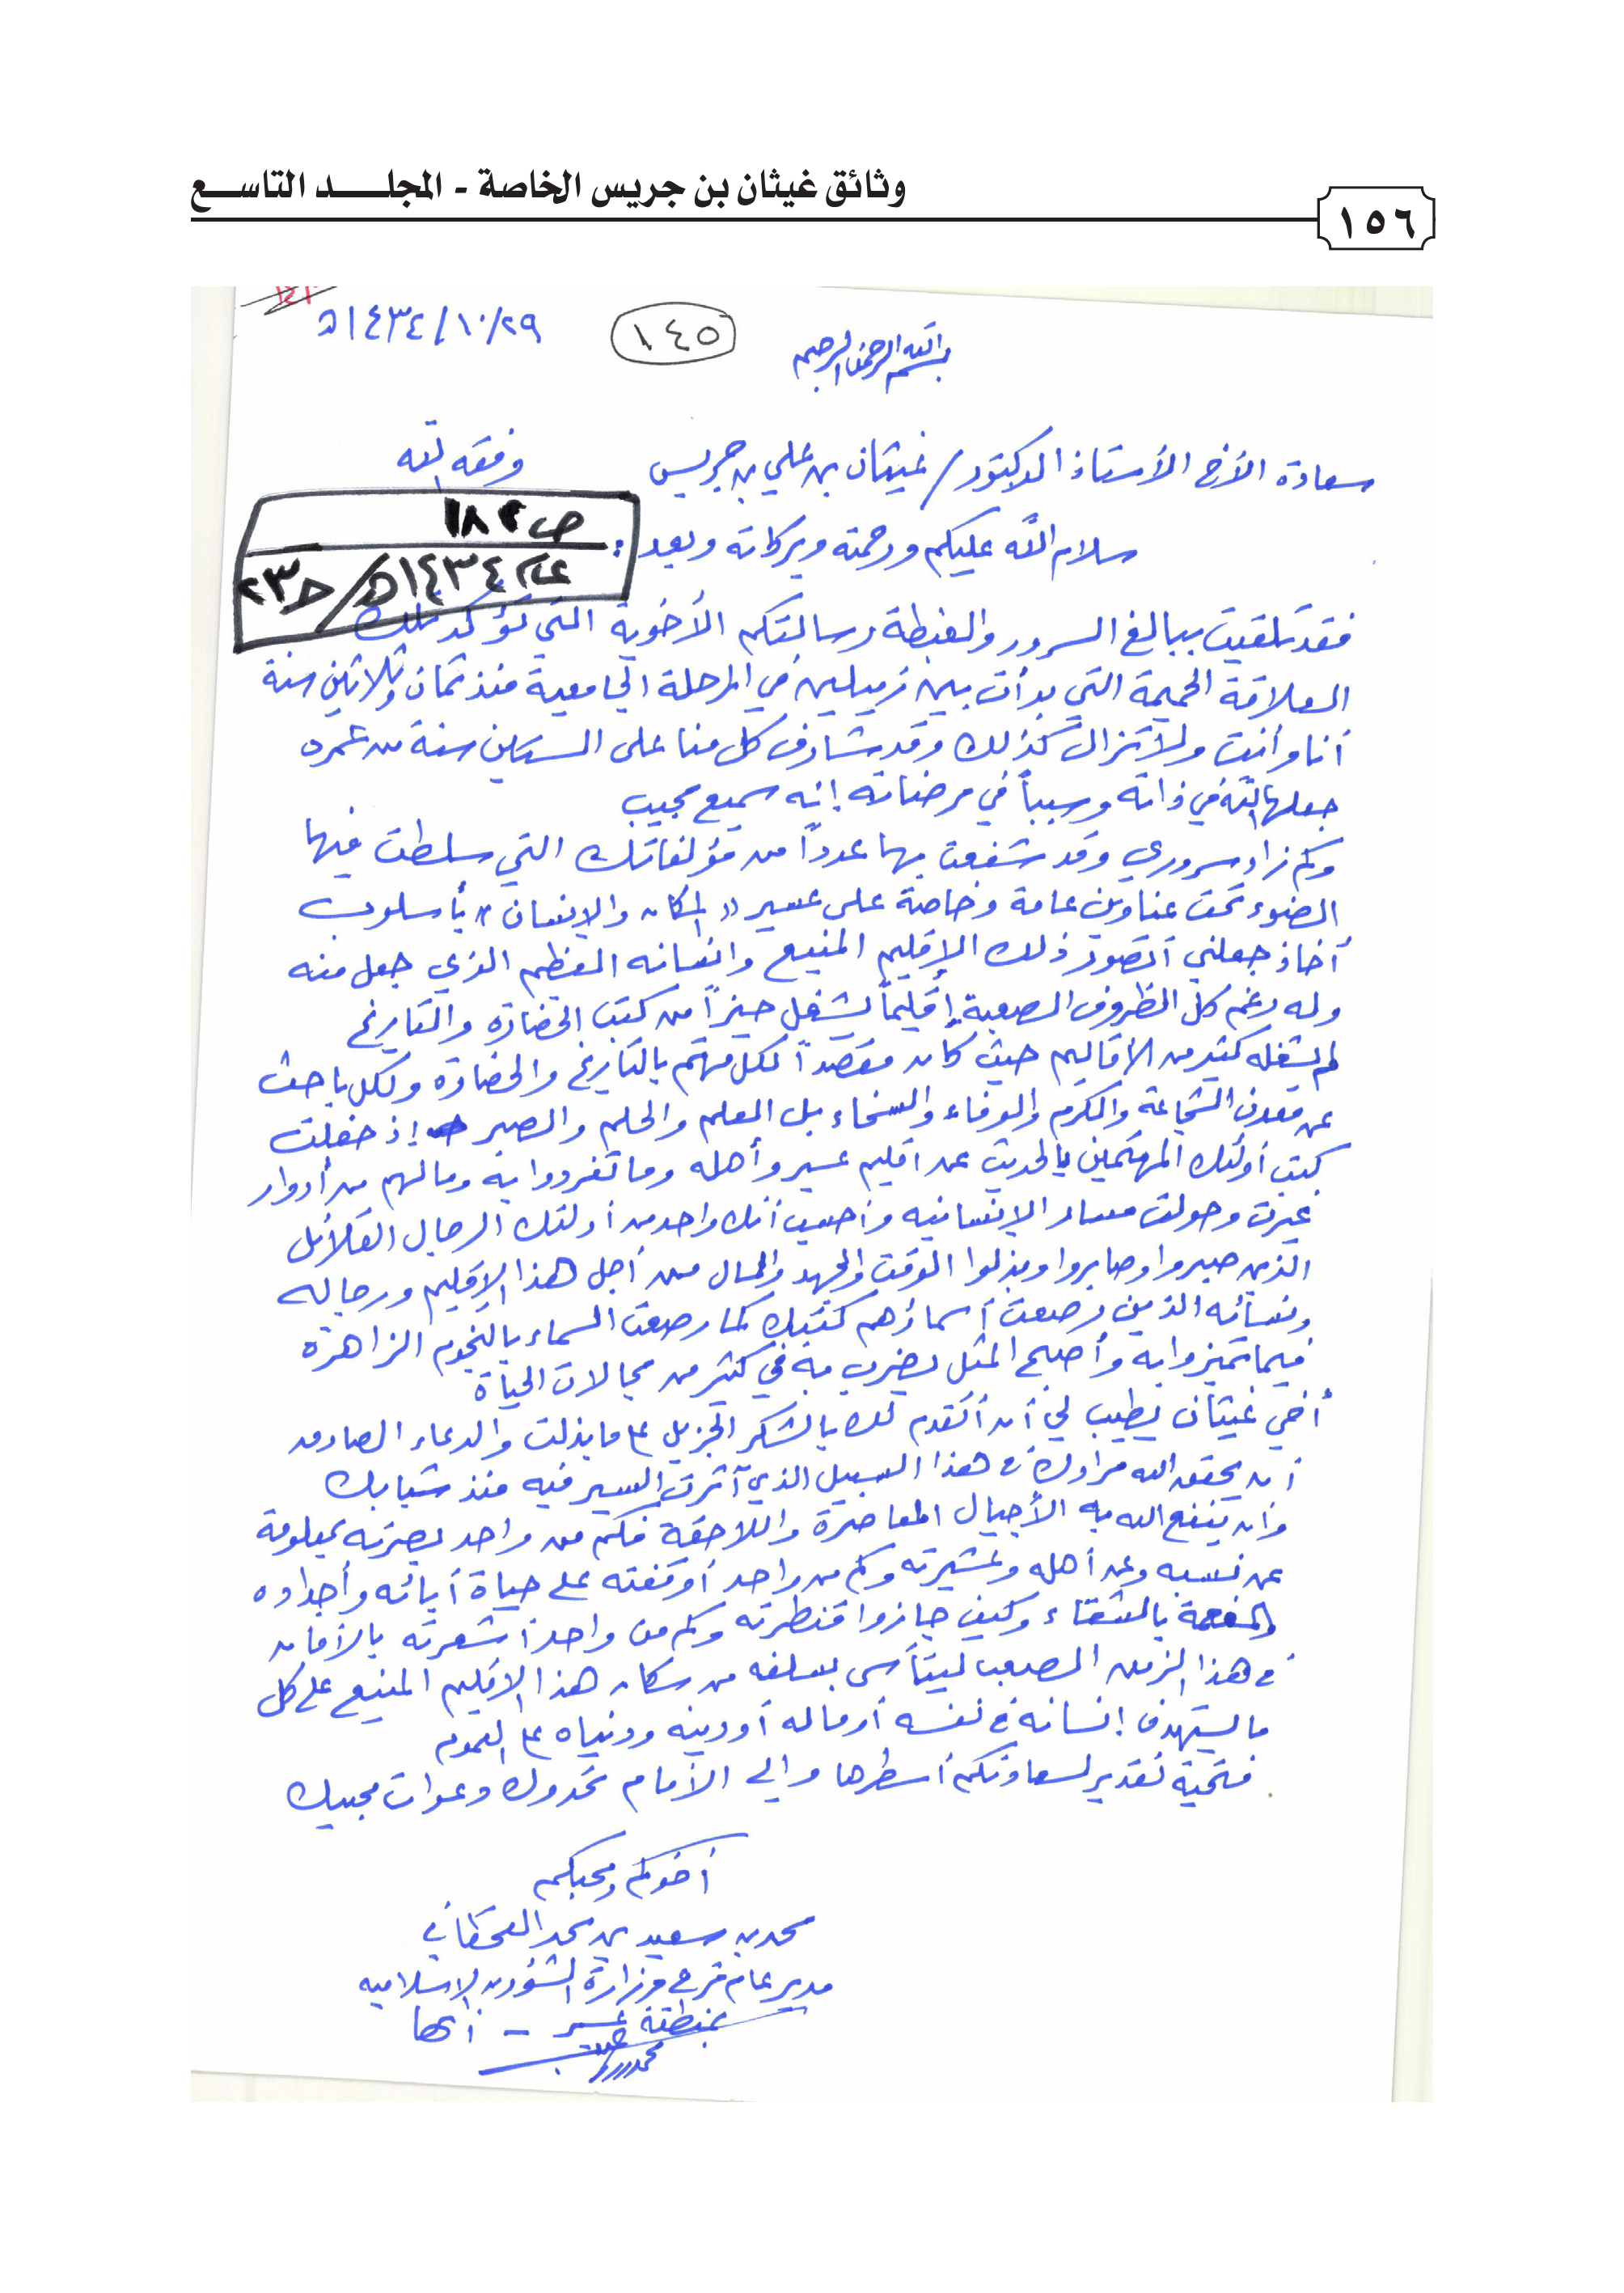 وثائق غيثان بن جريس الخاصة - المجلـــد التاســـع
١٥٦
١٤٣٤/١٠/٢٩هـ
١٤٥
بسم الله الرحمن الرحيم
سعادة الأخ الأستاذ الدكتور / غيثان بن علي بن جريس وفقه الله
سلام الله عليكم ورحمته وبركاته وبعد :
ص ١٨٢
عام ١٤٣٤هـ / ح ٢٣
فقد تلقيت ببالغ السرور والغبطة رسالتكم الأخوية التي تؤكد تلك
العلاقة الحميمة التي بدأت بين زميلين في المرحلة الجامعية منذ ثمان وثلاثين سنة
أنا وأنت ولا تزال كذلك وقد شارف كل منا على الستين سنة من عمره
جعلها الله في ذاته وسبباً في مرضاته إنه سميع مجيب
وكم زاد سروري وقد شفعت بها عدداً من مؤلفاتك التي سلطت فيها
الضوء تحت عناوين عامة وخاصة على عسير « المكان والإنسان » بأسلوب
أخاذ جعلني أتصور ذلك الإقليم المنيع وانسانه العظيم الذي جعل منه
وله رغم كل الظروف الصعبة إقليماً يشغل حيزاً من كتب الحضارة والتاريخ
لم يشغله كثير من الأقاليم حيث كان مقصداً لكل مهتم بالتاريخ والحضارة ولكل باحث
عن معدن الشجاعة والكرم والوفاء والسخاء بل العلم والحلم والصبر إذ حفلت
كتب أولئك المهتمين بالحديث عن اقليم عسير وأهله وما تفردوا به ومالهم من أدوار
غيرت وحولت مسار الإنسانيه وأحسب أنك واحد من أولئك الرجال القلائل
الذين صبروا وصابروا وبذلوا الوقت والجهد والمال من أجل هذا الإقليم ورجاله
ونسائه الذين رصعت أسماؤهم كتبك كما رصعت السماء بالنجوم الزاهرة
فيما تميزوا به وأصبح المثل يضرب به في كثير من مجالات الحياة
أخي غيثان يطيب لي أن أتقدم لك بالشكر الجزيل على ما بذلت والدعاء الصادق
أن يحقق الله مرادك في هذا السبيل الذي آثرت السير فيه منذ شبابك
وأن ينفع الله به الأجيال المعاصرة واللاحقة فكم من واحد بصرته بمعلومة
عن نسبه وعن أهله وعشيرته وكم من واحد أوقفته على حياة أبائه وأجداده
المفعمة بالشقاء وكيف جازوا قنطرته وكم من واحد أشعرته بالأمان
في هذا الزمن الصعب ليتأسى بسلفه من سكان هذا الإقليم المنيع على كل
ما يستهدف إنسانه في نفسه أو ماله أو دينه ودنياه على العموم
فتحية تقدير لسعادتكم أسطرها وإلى الأمام تحدوك دعوات محبيك
أخوكم ومحبكم
محمد بن سعيد بن محمد القحطاني
مدير عام فرع وزارة الشؤون الإسلاميه
بمنطقة عسير - أبها